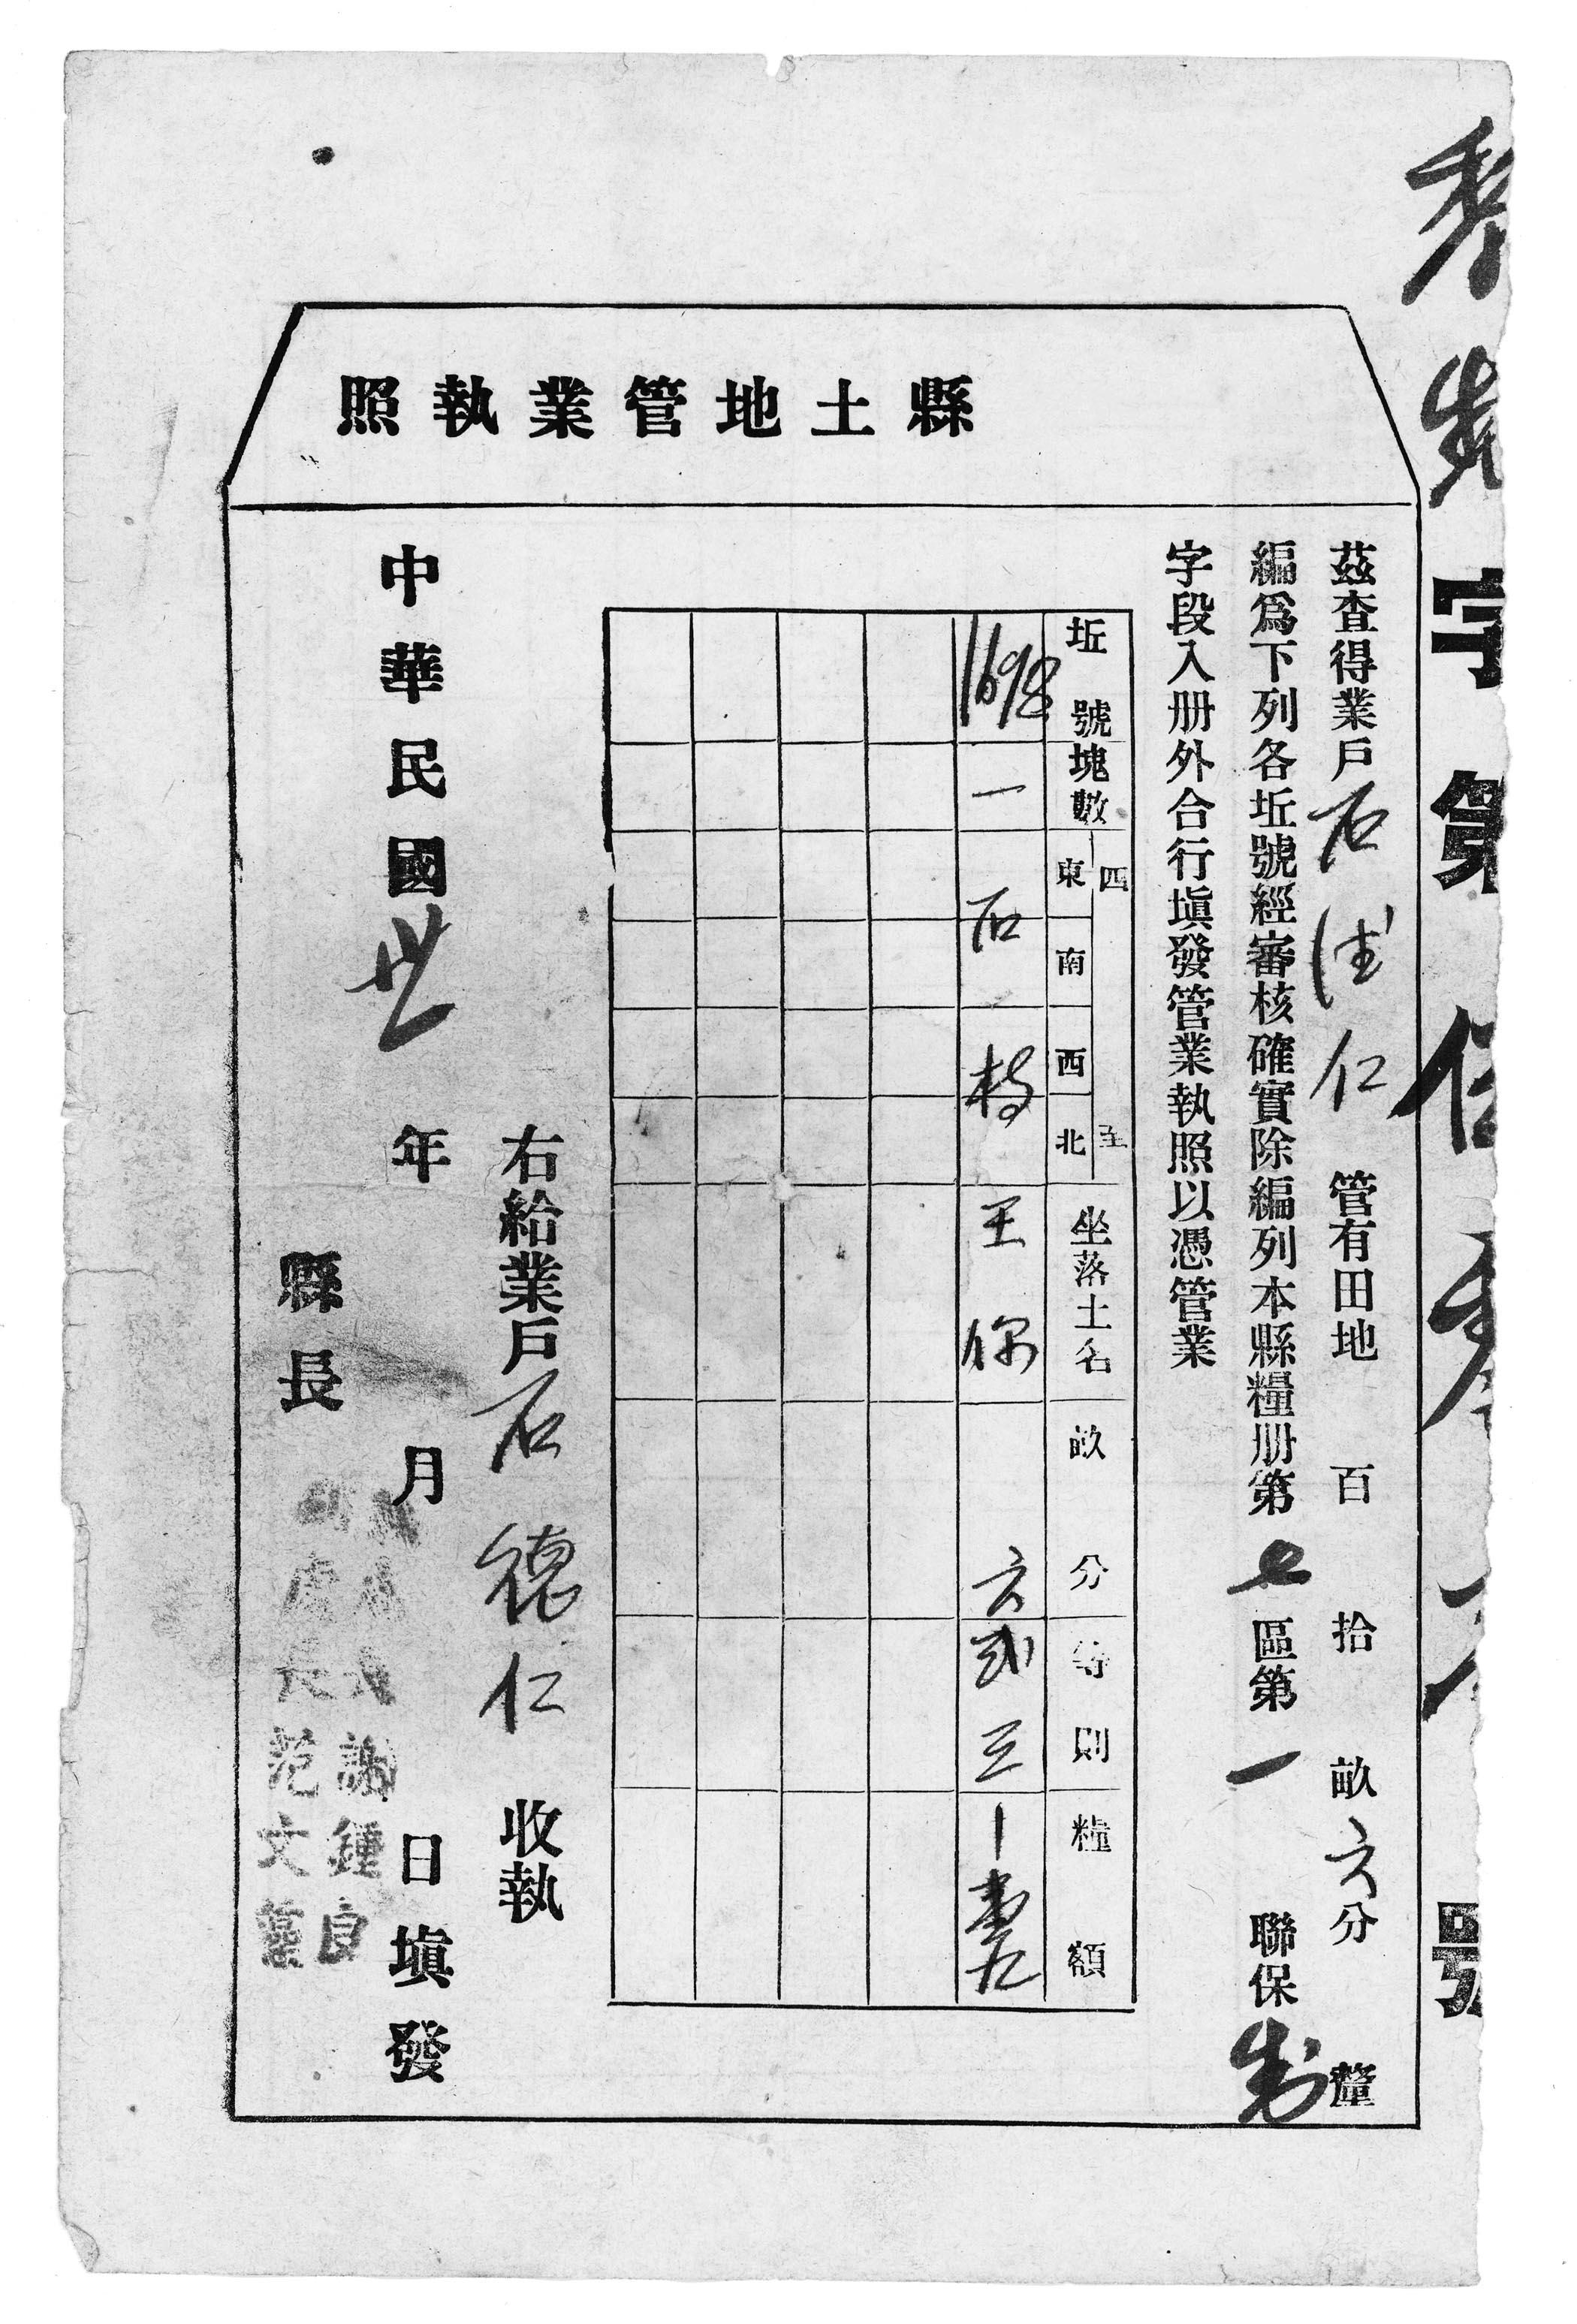 縣土地管業執照
字第號
茲查得業戶石德仁管有田地百拾畝六分釐
編爲下列各坵號經審核確實除編列本縣糧册第七區第一聯保
字段入册外合行塡發管業執照以憑管業
坵號 塊數 四至 東 南 西 北 坐落土名 畝分 等則 糧額
1698 一 石 王 六 三
右給業戶石德仁收執
中華民國世年月日塡發
縣長
謝鍾良
長范文